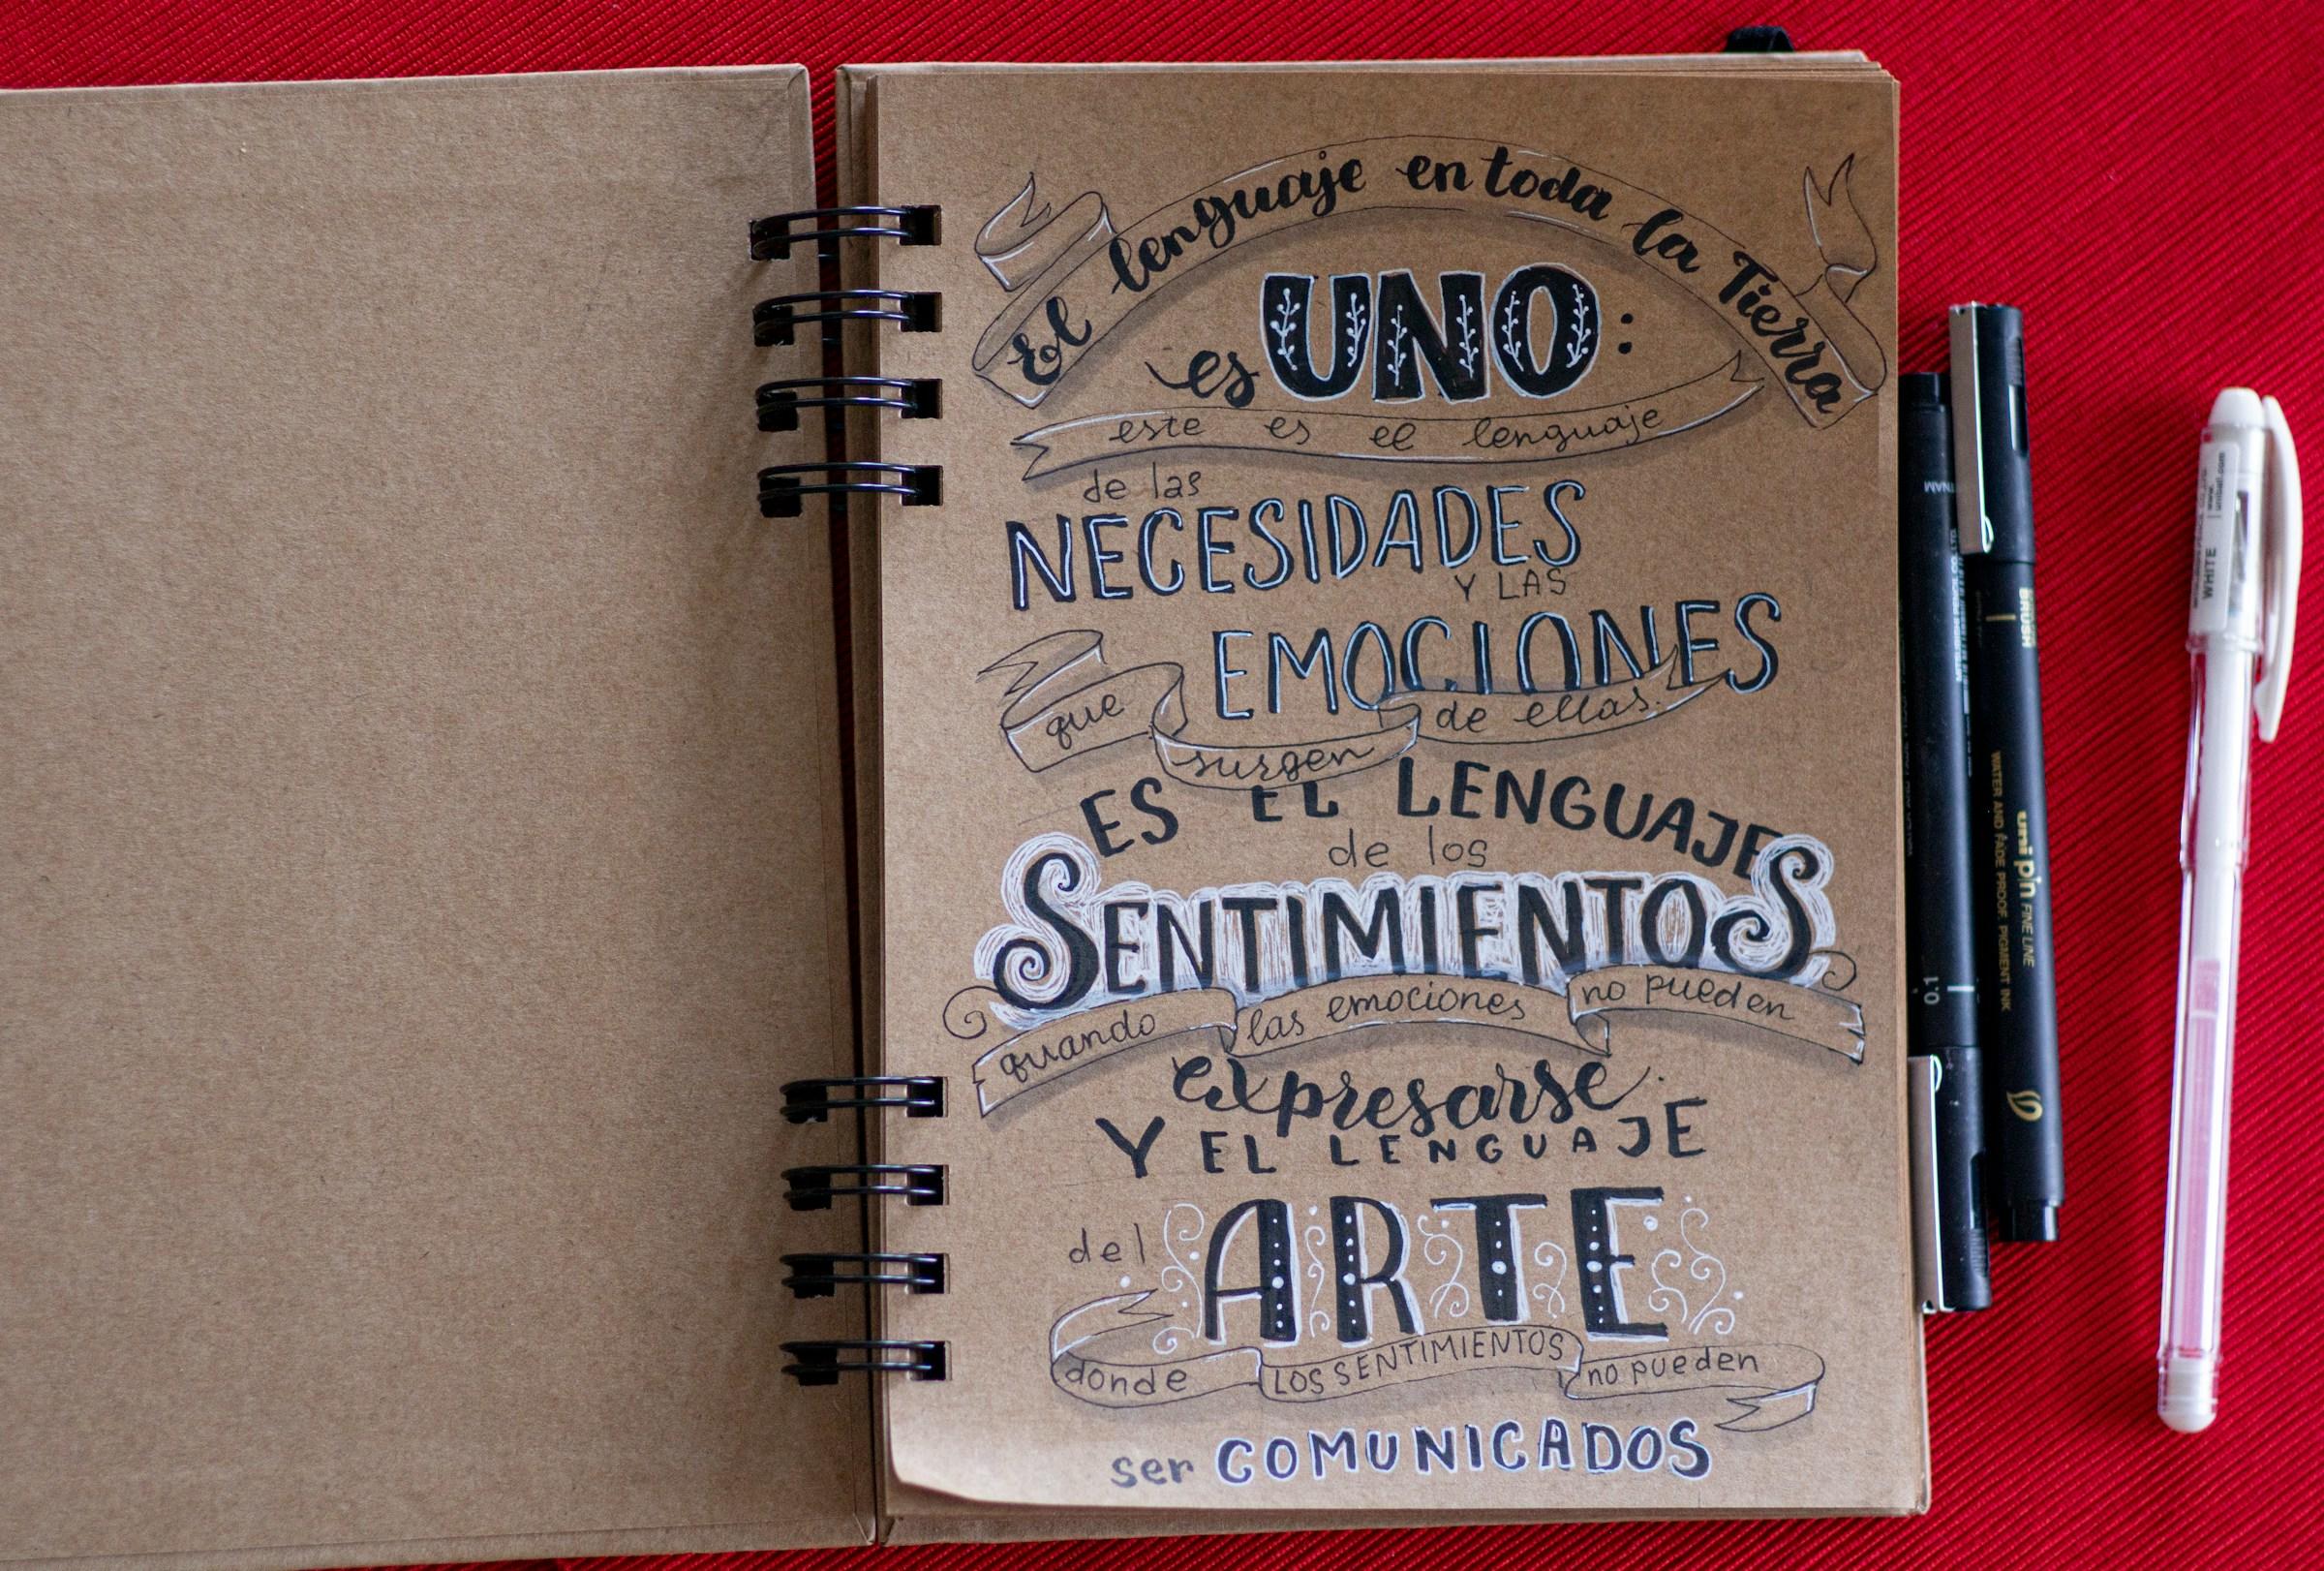 El lenguaje en toda la Tierra
es UNO:
este es el lenguaje
de las
NECESIDADES
Y LAS
EMOCIONES
que surgen de ellas.
ES EL LENGUAJE
de los
SENTIMIENTOS
quando las emociones no pueden
expresarse.
Y EL LENGUAJE
del ARTE
donde LOS SENTIMIENTOS no pueden
ser COMUNICADOS
BRUSH
uni pin FINE LINE
WATER AND FADE PROOF, PIGMENT INK
0.1
WHITE